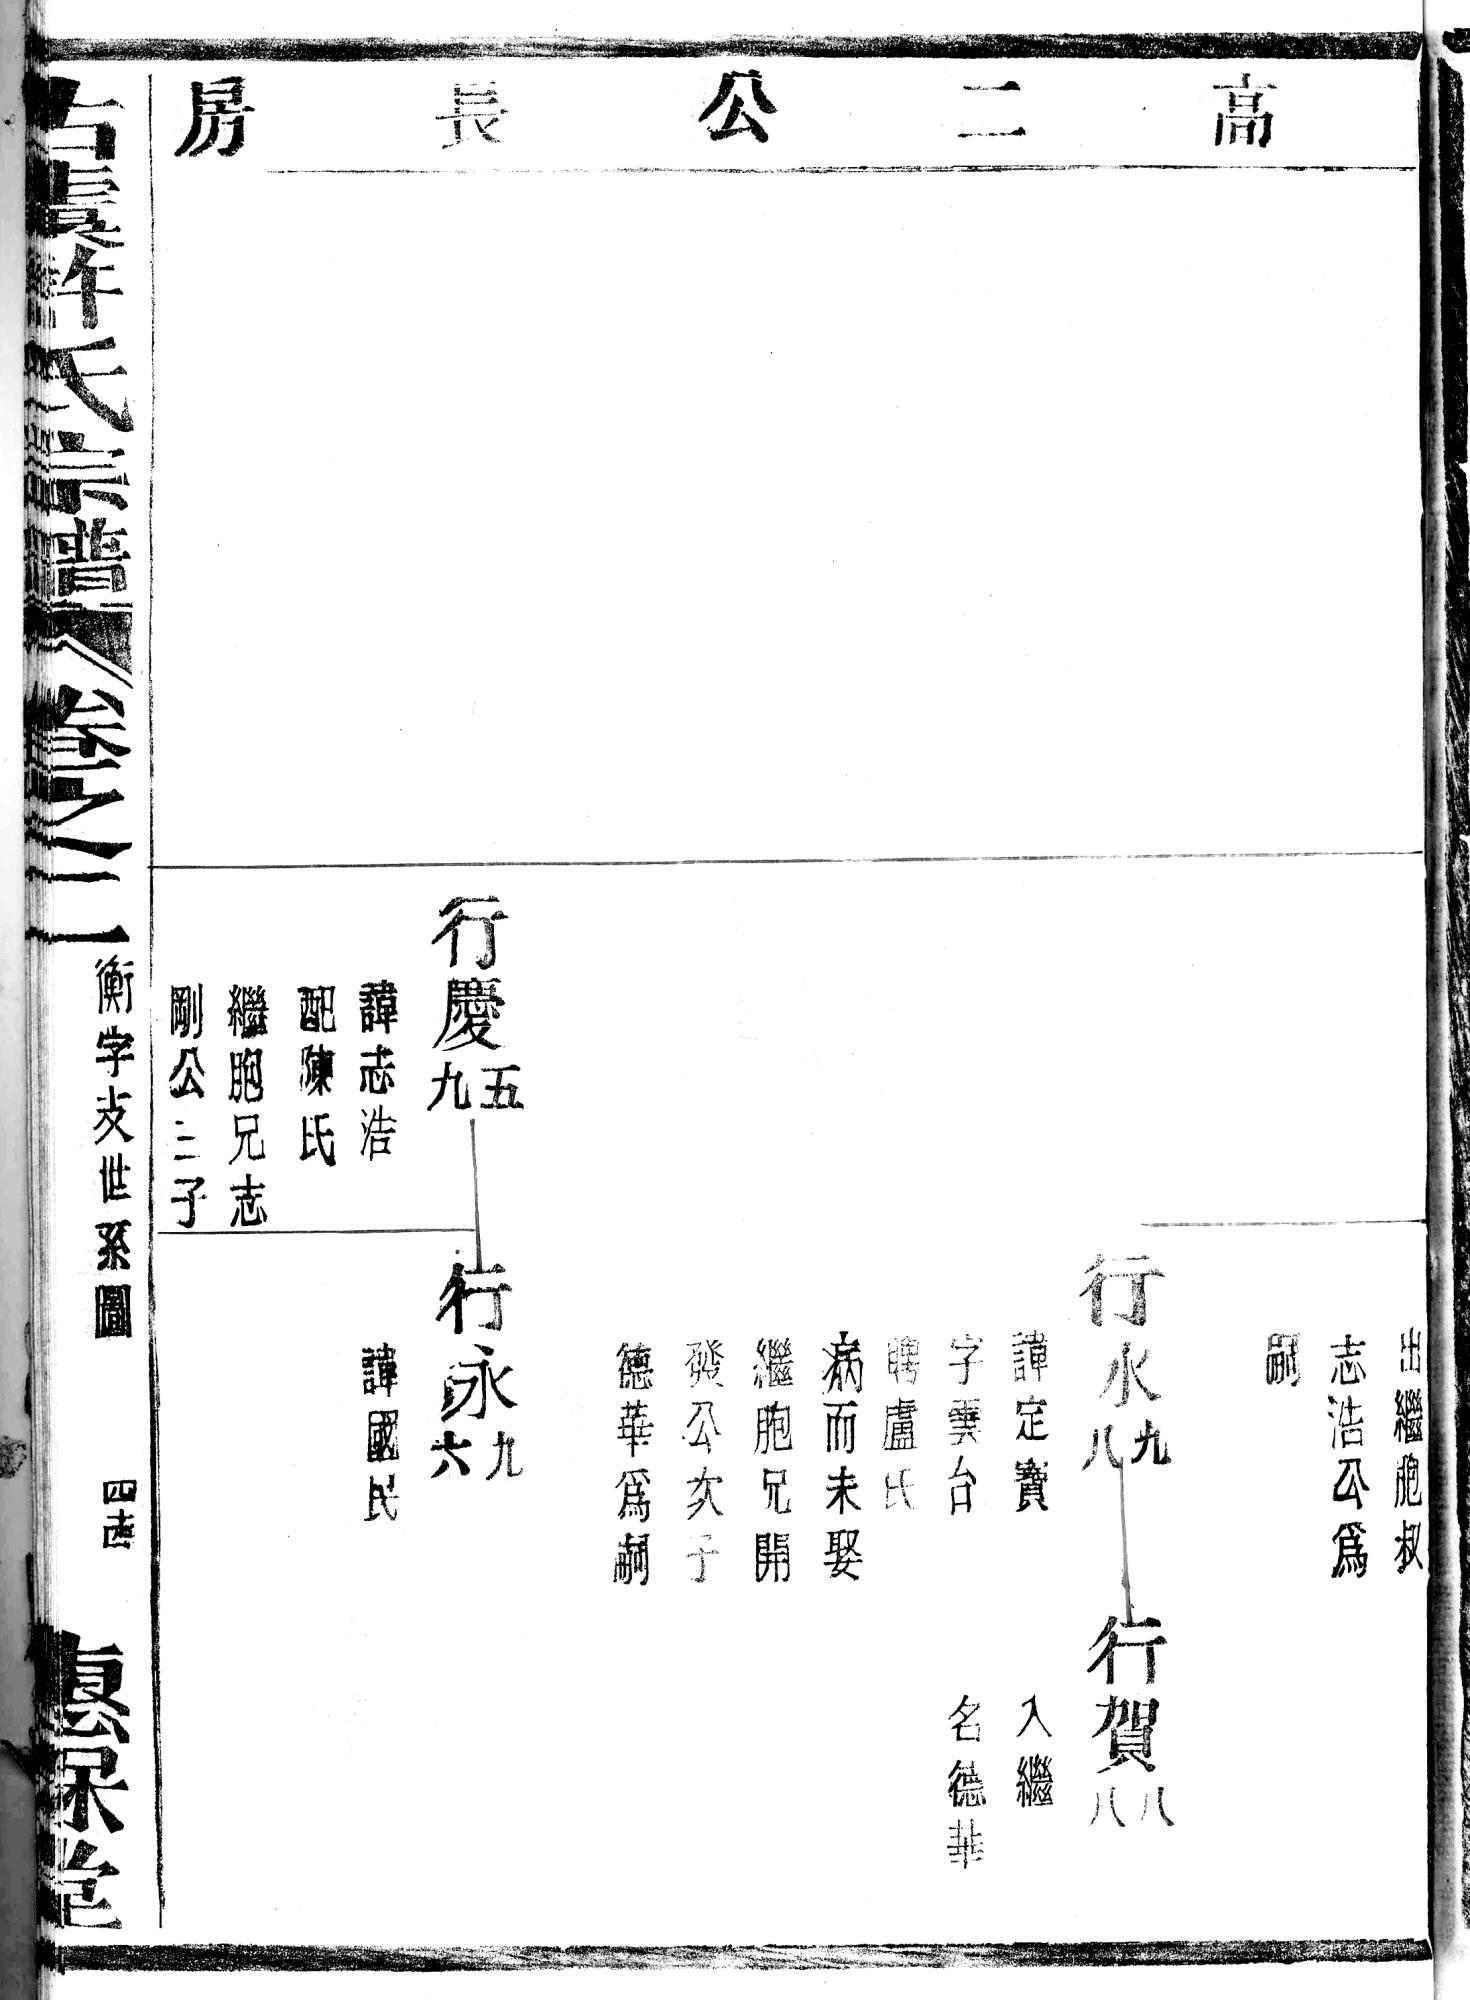 高二公長房
出繼胞叔
志浩公爲
嗣
行永九八
諱定寶
字雲台
聘盧氏
病而未娶
繼胞兄開
發公次子
德華爲嗣
行賀八八
入繼
名德華
行慶五九
諱志浩
配陳氏
繼胞兄志
剛公二子
行永九六
諱國民
古虞許氏宗譜
卷之二
衡字支世系圖